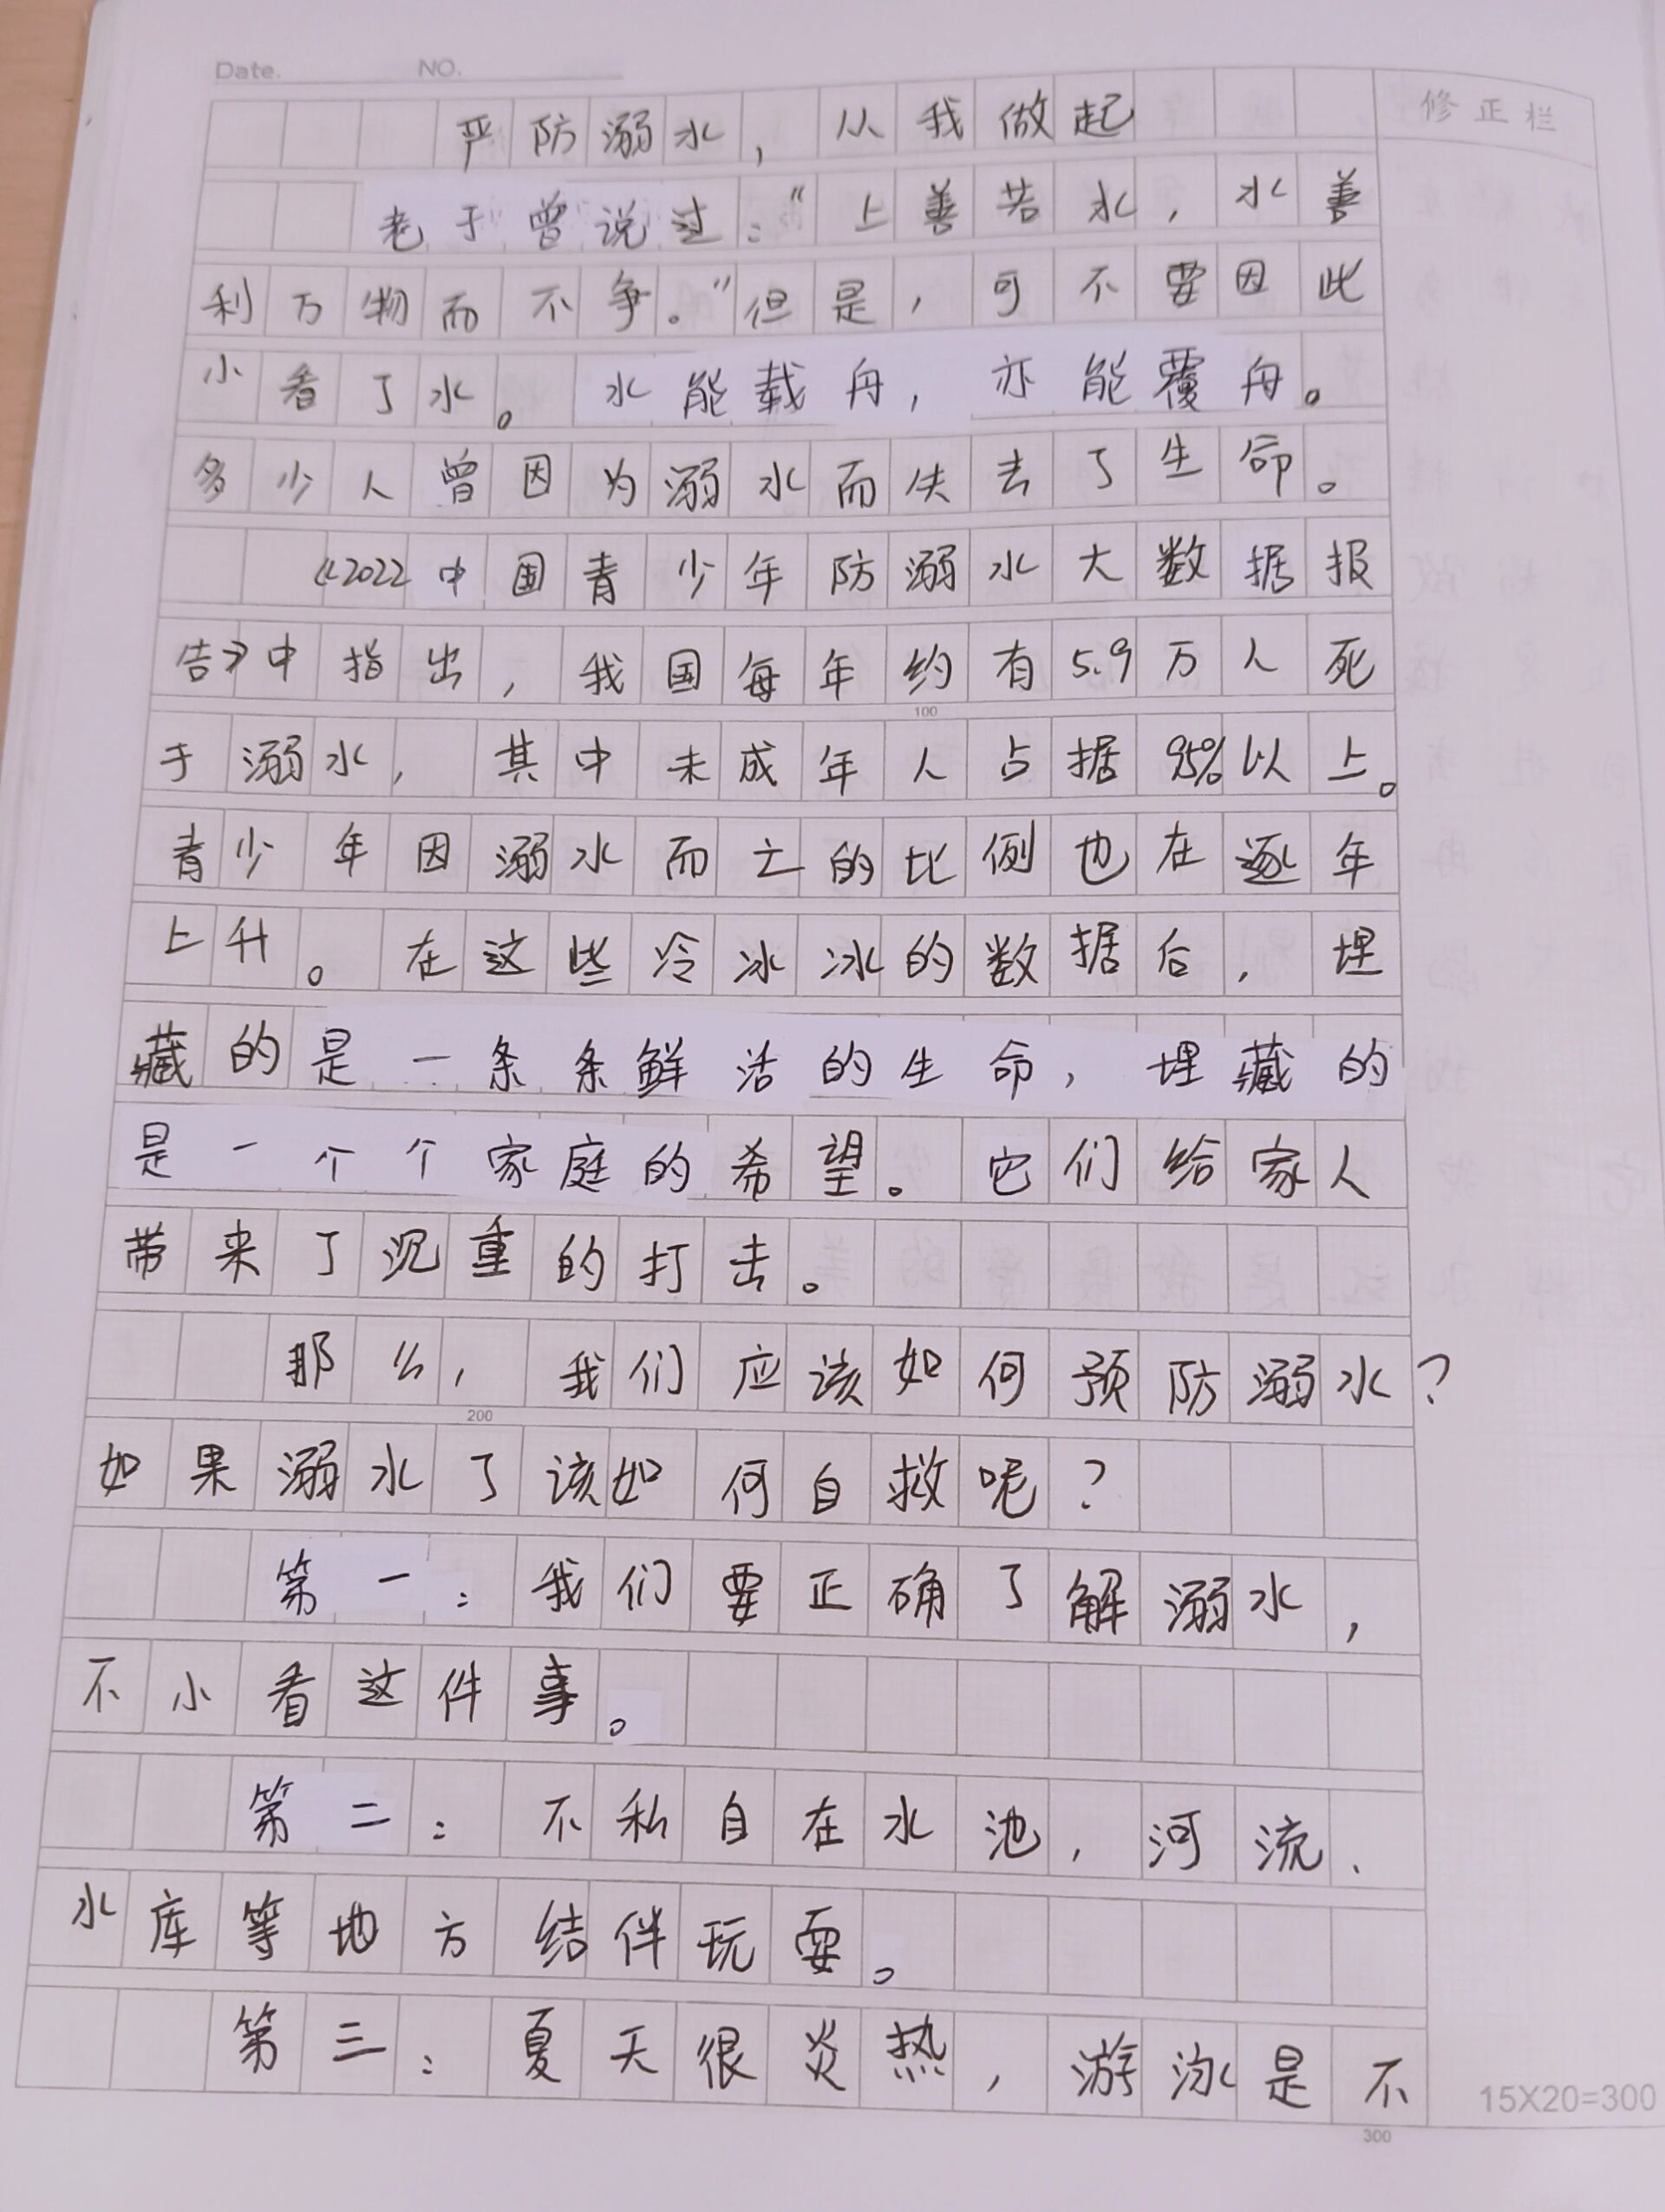 Date. NO.
修正栏
严防溺水，从我做起
老子曾说过：“上善若水，水善
利万物而不争。”但是，可不要因此
小看了水。水能载舟，亦能覆舟。
多少人曾因为溺水而失去了生命。
《2022中国青少年防溺水大数据报
告》中指出，我国每年约有5.9万人死
于溺水，其中未成年人占据95%以上。
100
青少年因溺水而亡的比例也在逐年
上升。在这些冷冰冰的数据后，埋
藏的是一条条鲜活的生命，埋藏的
是一个个家庭的希望。它们给家人
带来了沉重的打击。
那么，我们应该如何预防溺水？
200
如果溺水了该如何自救呢？
第一：我们要正确了解溺水，
不小看这件事。
第二：不私自在水池，河流、
水库等地方结伴玩耍。
第三：夏天很炎热，游泳是不
15X20=300
300